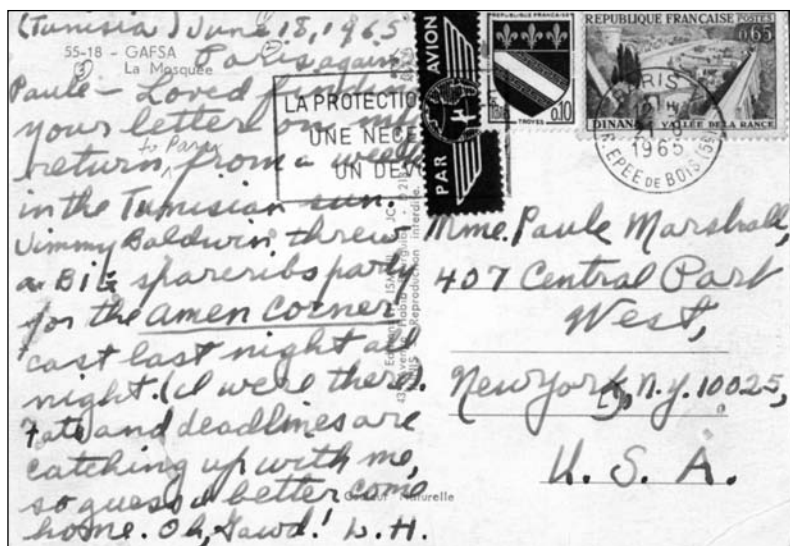 (Tunisia) June 18, 1965
55-18 - GAFSA
La Mosquée
Paris again
Paule - Loved finding
your letter on my
return to Paris from a week
in the Tunisian sun.
Jimmy Baldwin threw
a BIG spareribs party
for the Amen Corner
cast last night all
night. (I were there).
Fate and deadlines are
catching up with me,
so guess I better come
home. Oh, Gawd! L.H.
Couleur Naturelle
Reproduction interdite
LA PROTECTIO
UNE NÉCE
UN DEVO
PAR AVION
REPUBLIQUE FRANÇAISE
0,10
TROYES
REPUBLIQUE FRANÇAISE POSTES
0,65
DINAN VALLÉE DE LA RANCE
PARIS
1965
R. EPEE DE BOIS (5e)
Mme. Paule Marshall,
407 Central Park
West,
New York, N.Y. 10025,
U. S. A.